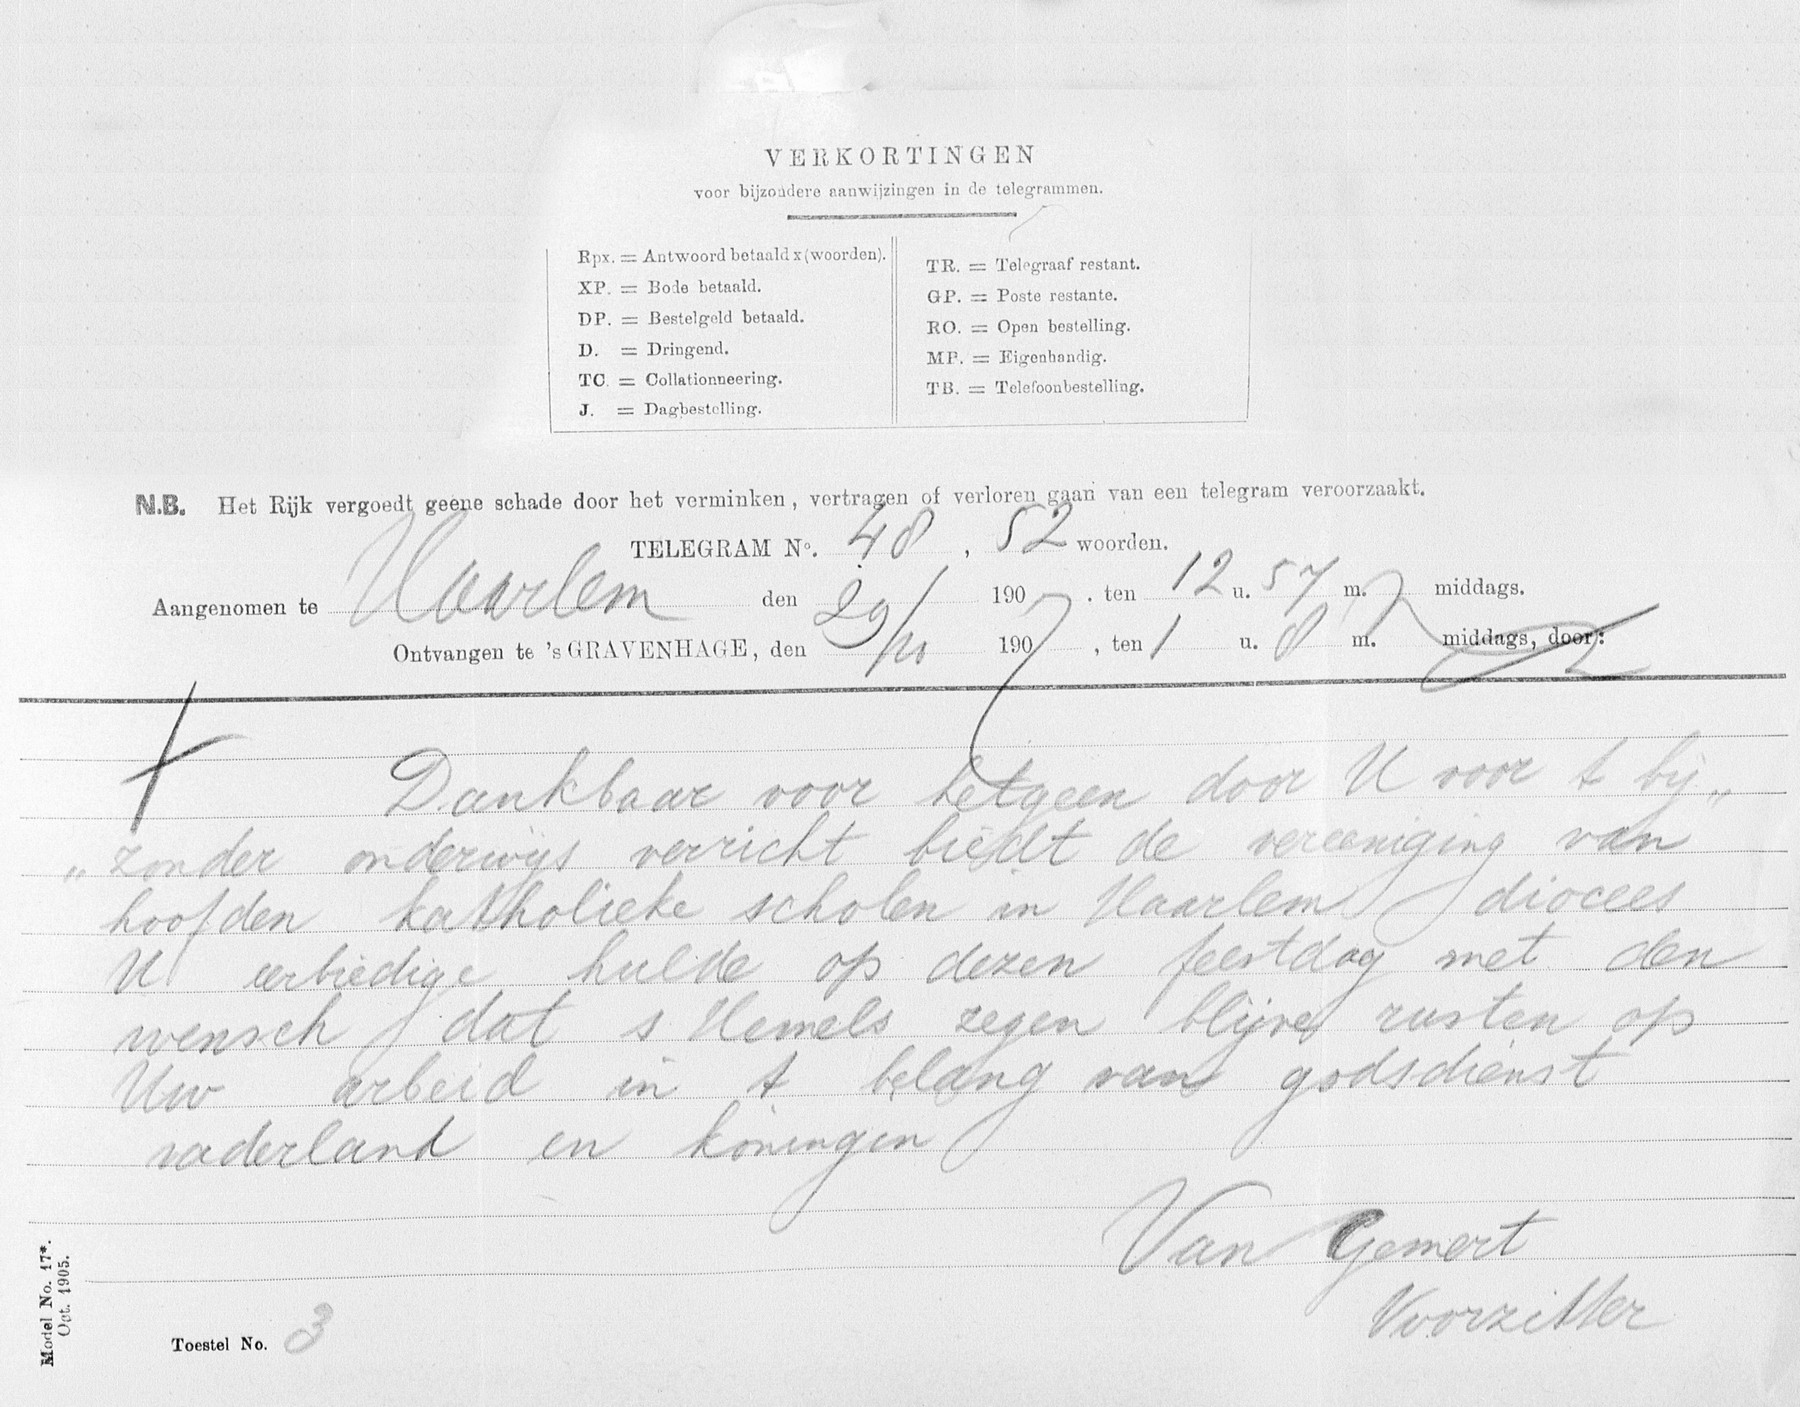 VERKORTINGEN
voor bijzondere aanwijzingen in de telegrammen.
Rpx. = Antwoord betaald x (woorden).
XP. = Bode betaald.
DP. = Bestelgeld betaald.
D. = Dringend.
TC. = Collationneering.
J. = Dagbestelling.
TR. = Telegraaf restant.
GP. = Poste restante.
RO. = Open bestelling.
MP. = Eigenhandig.
TB. = Telefoonbestelling.
N.B. Het Rijk vergoedt geene schade door het verminken, vertragen of verloren gaan van een telegram veroorzaakt.
TELEGRAM No. 48, 52 woorden.
Aangenomen te Haarlem den 29/ 1907. ten 12 u. 57 m. middags.
Ontvangen te 's GRAVENHAGE, den /10 1907, ten 1 u. 8 m. middags, door:
Dankbaar voor hetgeen door U voor t bij„
„zonder onderwijs verricht biedt de vereeniging van
hoofden katholieke scholen in Haarlem diocees
U eerbiedige hulde op dezen feestdag met den
wensch dat s Hemels zegen blijve rusten op
Uw arbeid in t belang van godsdienst
vaderland en koningin
Van Gemert
Voorzitter
Model No. 17*.
Oct. 1905.
Toestel No. 3